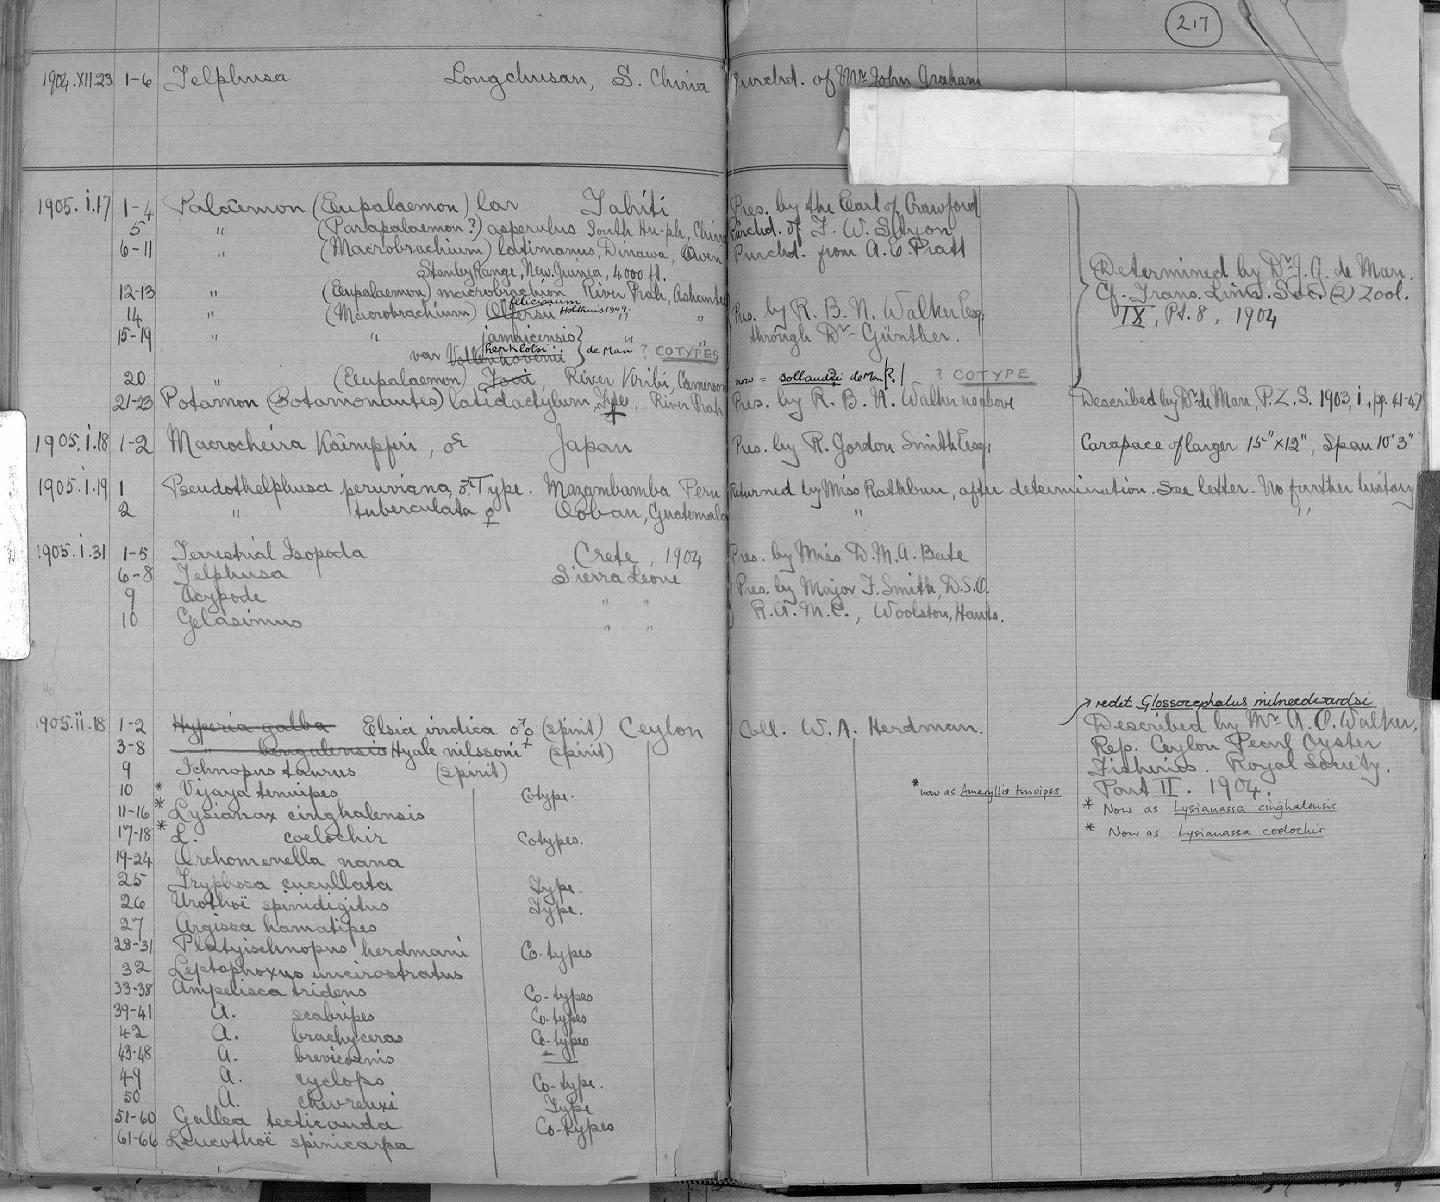 217
1904.XII.23 1-6 Telphusa Longchusan, S. China Purchd. of Mr. John Graham
1905.i.17 1-4 Palaemon (Eupalaemon) lar Tahiti Pres. by the Earl of Crawford
5 " (Parapalaemon?) asperulus South Hu-ph, China Purchd. of F. W. Styan
6-11 " (Macrobrachium) latimanus, Dinawa, Owen Purchd. from A. E. Pratt
Stanley Range, New Guinea, 4000 ft.
Determined by Dr. J. G. de Man.
12-13 " (Eupalaemon) macrobrachion River Prah, Ashantee
Cf. Trans. Linn. Soc. (2) Zool.
felicinum
14 " (Macrobrachium) Olfersii Holthuis 1949. " " Pres. by R. B. N. Walker Esq.
IX, Pt. 8, 1904
15-19 " " jamaicensis " " through Dr. Günther.
var Vollenhovenii herklotsi } de Man ? COTYPES
20 " (Eupalaemon) River Kribi, Cameroon now = sollaudii de Man [R.] ? COTYPE
21-23 Potamon (Potamonautes) latidactylum, Types, River Prah Pres. by R. B. N. Walker as above Described by Dr. de Man, P.Z.S. 1903, i, pp. 41-47
1905.i.18 1-2 Macrocheira Kämpferi, ♂ Japan Pres. by R. Gordon Smith Esq. Carapace of larger 15"×12", Span 10'3"
1905.i.19 1 Pseudothelphusa peruviana, ♂ Type. Mazambamba Peru Returned by Miss Rathbun, after determination. See letter. No further history
2 " tuberculata ♀ Coban, Guatemala " "
1905.i.31 1-5 Terrestrial Isopoda Crete, 1904 Pres. by Miss D. M. A. Bate
6-8 Telphusa Sierra Leone Pres. by Major F. Smith, D.S.O.
9 Ocypode " " R.A.M.C., Woolston, Hants.
10 Gelasimus " "
redet. Glossocephalus milneedwardsi
1905.ii.18 1-2 Hyperia galba Elsia indica ♂♀ (spirit) Ceylon Coll. W. A. Herdman. Described by Mr. A. O. Walker,
3-8 " bengalensis Hyale nilssoni (spirit) Rep. Ceylon Pearl Oyster
9 Ichnopus taurus (spirit) Fisheries. Royal Society.
10 * Vijaya tenuipes Cotype. * now as Amaryllis tenuipes Part II. 1904.
11-16 * Lysianax cinghalensis * Now as Lysianassa cinghalensis
17-18 * L. coelochir Cotypes. * Now as Lysianassa coelochir
19-24 Orchomenella nana
25 Tryphosa cucullata Type.
26 Urothoë spinidigitus Type.
27 Argissa hamatipes
28-31 Platyischnopus herdmani Co-types
32 Leptophoxus uncirostratus
33-38 Ampelisca tridens Co-types
39-41 A. scabripes Co-types
42 A. brachyceras Co-types
43-48 A. brevicornis —
49 A. cyclops Co-type.
50 A. chevreuxi Type
51-60 Gallea tecticauda Co-types
61-66 Leucothoë spinicarpa